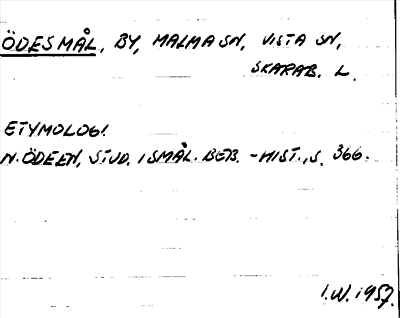 ÖDESMÅL, BY, MALMA SN, VISTA SN,
SKARAB. L.
ETYMOLOGI.
N. ÖDEEN, STUD. I SMÅL. BEB. -HIST., S. 366.
I.W. 1957.